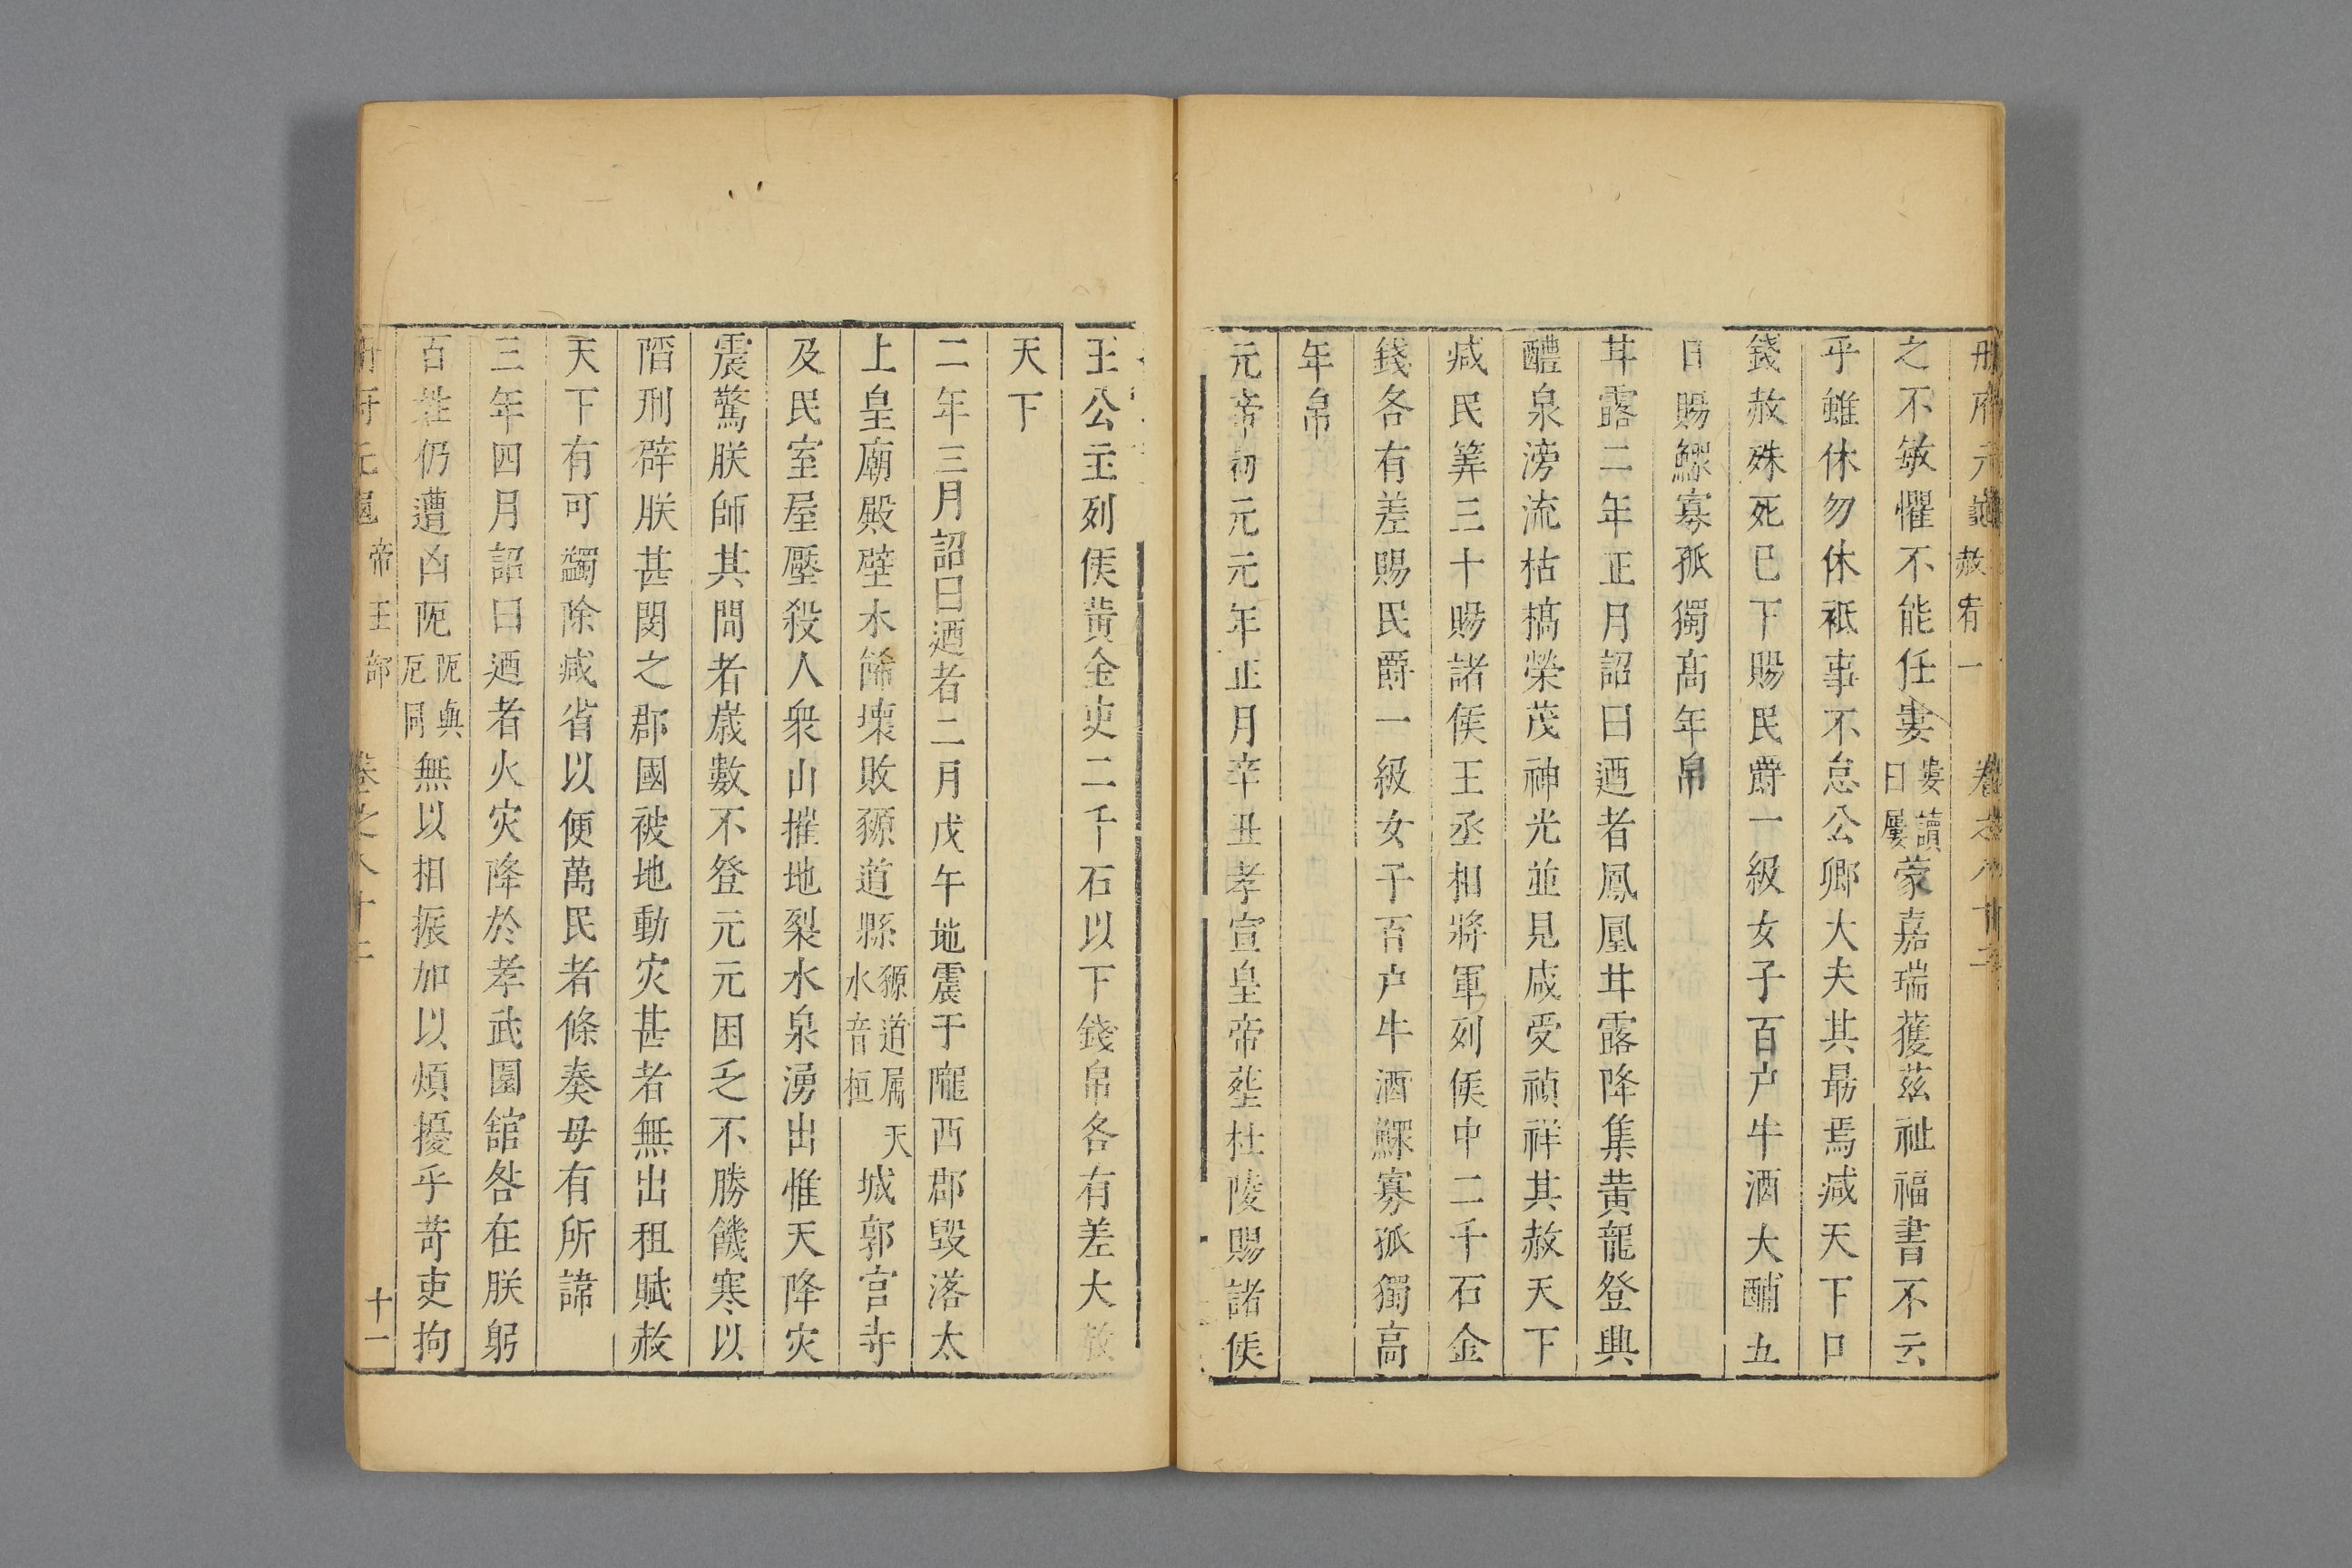 冊府元龜 赦宥一 卷之八十二
之不敏懼不能任婁婁讀曰屢蒙嘉瑞獲茲祉福書不云
乎雖休勿休祗事不怠公卿大夫其最焉减天下口
錢赦殊死已下賜民爵一級女子百户牛酒大酺五
日賜鰥寡孤獨髙年帛
甘露二年正月詔曰迺者鳳凰甘露降集黄龍登興
醴泉滂流枯槁榮茂神光並見咸受禎祥其赦天下
减民筭三十賜諸侯王丞相將軍列侯中二千石金
錢各有差賜民爵一級女子百户牛酒鰥寡孤獨高
年帛
元帝初元元年正月辛丑孝宣皇帝塟杜陵賜諸侯
王公主列侯黄金吏二千石以下錢帛各有差大赦
天下
二年三月詔曰迺者二月戊午地震于隴西郡毁落太
上皇廟殿壁木飾壞敗豲道縣豲道属天水音桓城郭官寺
及民室屋壓殺人衆山摧地裂水泉湧出惟天降灾
震驚朕師其間者嵗數不登元元困乏不勝饑寒以
䧟刑辟朕甚閔之郡國被地動灾甚者無出租賦赦
天下有可蠲除减省以便萬民者條奏毋有所諱
三年四月詔曰迺者火灾降於孝武園舘咎在朕躬
百姓仍遭凶阨阨與厄同無以相振加以煩擾乎苛吏拘
册府元龜 帝王部 卷之八十二 十一